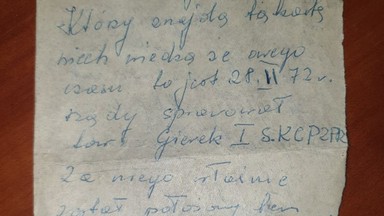 Który znajdą tą kartę
niech wiedzą że owego
czasu to jest 28 II 72 r.
rządy sprawował
tow. Gierek I S. KC PZPR
Za niego właśnie
został położony ten